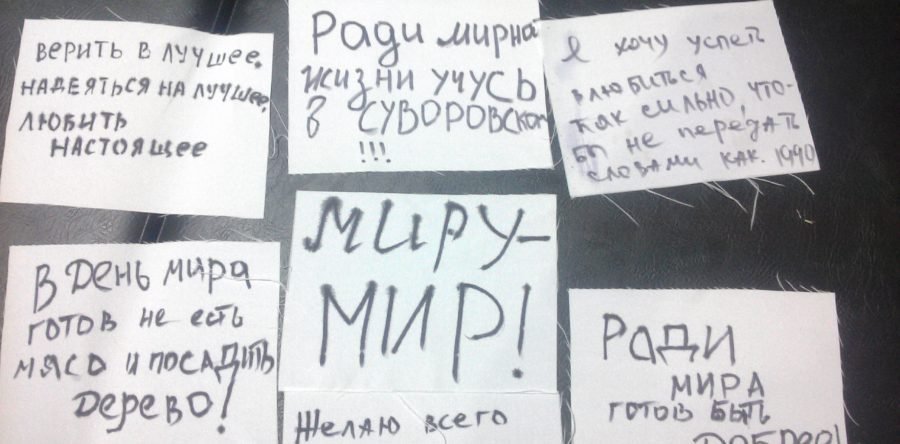 ВЕРИТЬ В ЛУЧШЕЕ,
НАДЕЯТЬСЯ НА ЛУЧШЕЕ,
ЛЮБИТЬ
НАСТОЯЩЕЕ
Ради мирна
жизни учусь
в СУВОРОВСКОМ
!!!
Я хочу успеть
влюбиться
так сильно, что-
бы не передать
словами как. 1990
В День мира
готов не есть
мясо и посадить
дерево!
МИРУ-
МИР!
Желаю всего
Ради
МИРА
готов быть
добрее!